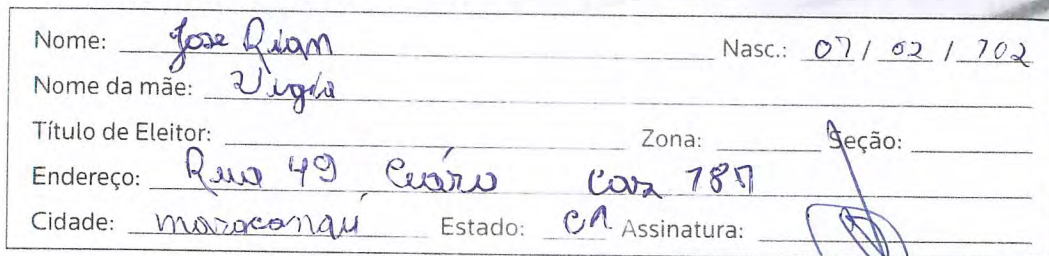 Nome: Jose Rian Nasc.: 07 / 02 / 702
Nome da mãe:
Título de Eleitor: Zona: Seção:
Endereço: Rua 49 Casa 787
Cidade: maracanaú Estado: CA Assinatura: